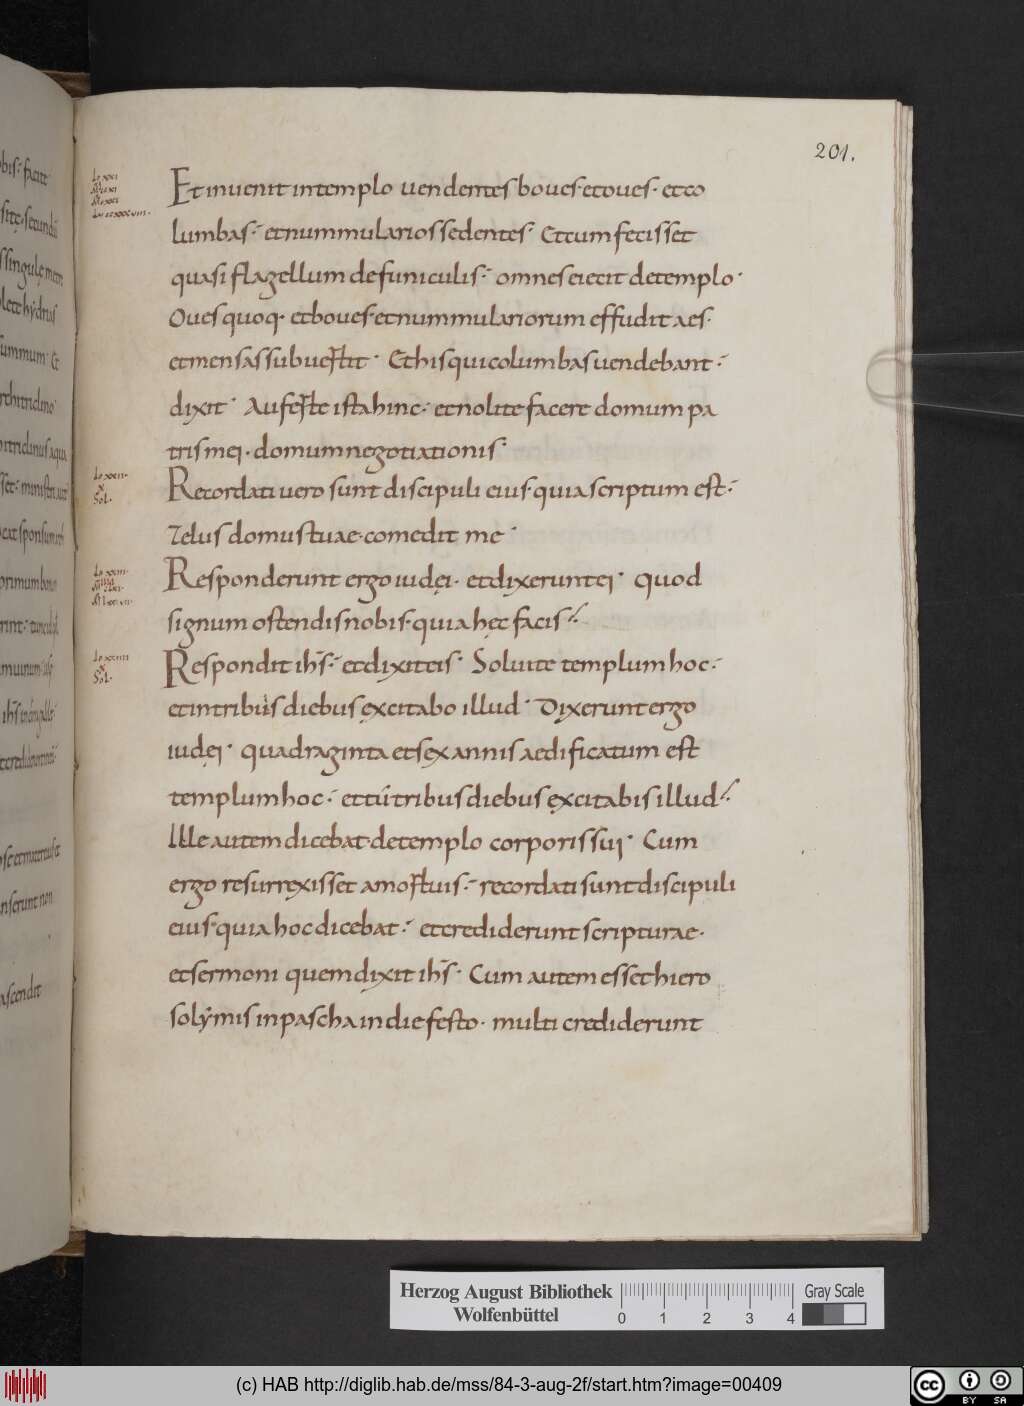 201.
Et inuenit in templo uendentes boues· et oues· et co
lumbas·⁊ et nummularios sedentes· Et cum fecisset
quasi flagellum de funiculis·⁊ omnes eiecit de templo·
Oues quoq· et boues· et nummulariorum effudit aes·
et mensas subuertit· Et his qui columbas uendebant·⁊
dixit· Auferte ista hinc·⁊ et nolite facere domum pa
tris mei· domum negotiationis·
Recordati uero sunt discipuli eius· quia scriptum est·⁊
Zelus domus tuae· comedit me·
Responderunt ergo iudęi· et dixerunt ei· quod
signum ostendis nobis· quia hęc facis·⁊
Respondit ihs·⁊ et dixit eis· Soluite templum hoc·⁊
et in tribus diebus excitabo illud· Dixerunt ergo
iudęi· quadraginta et sex annis aedificatum est
templum hoc·⁊ et tū tribus diebus excitabis illud·⁊
Ille autem dicebat· de templo corporis sui· Cum
ergo resurrexisset a mortuis·⁊ recordati sunt discipuli
eius· quia hoc dicebat·⁊ et crediderunt scripturae·
et sermoni quem dixit ihs· Cum autem esset hiero
solymis in pascha in die festo· multi crediderunt
Herzog August Bibliothek
Wolfenbüttel
0 1 2 3 4
Gray Scale
(c) HAB http://diglib.hab.de/mss/84-3-aug-2f/start.htm?image=00409
cc BY SA